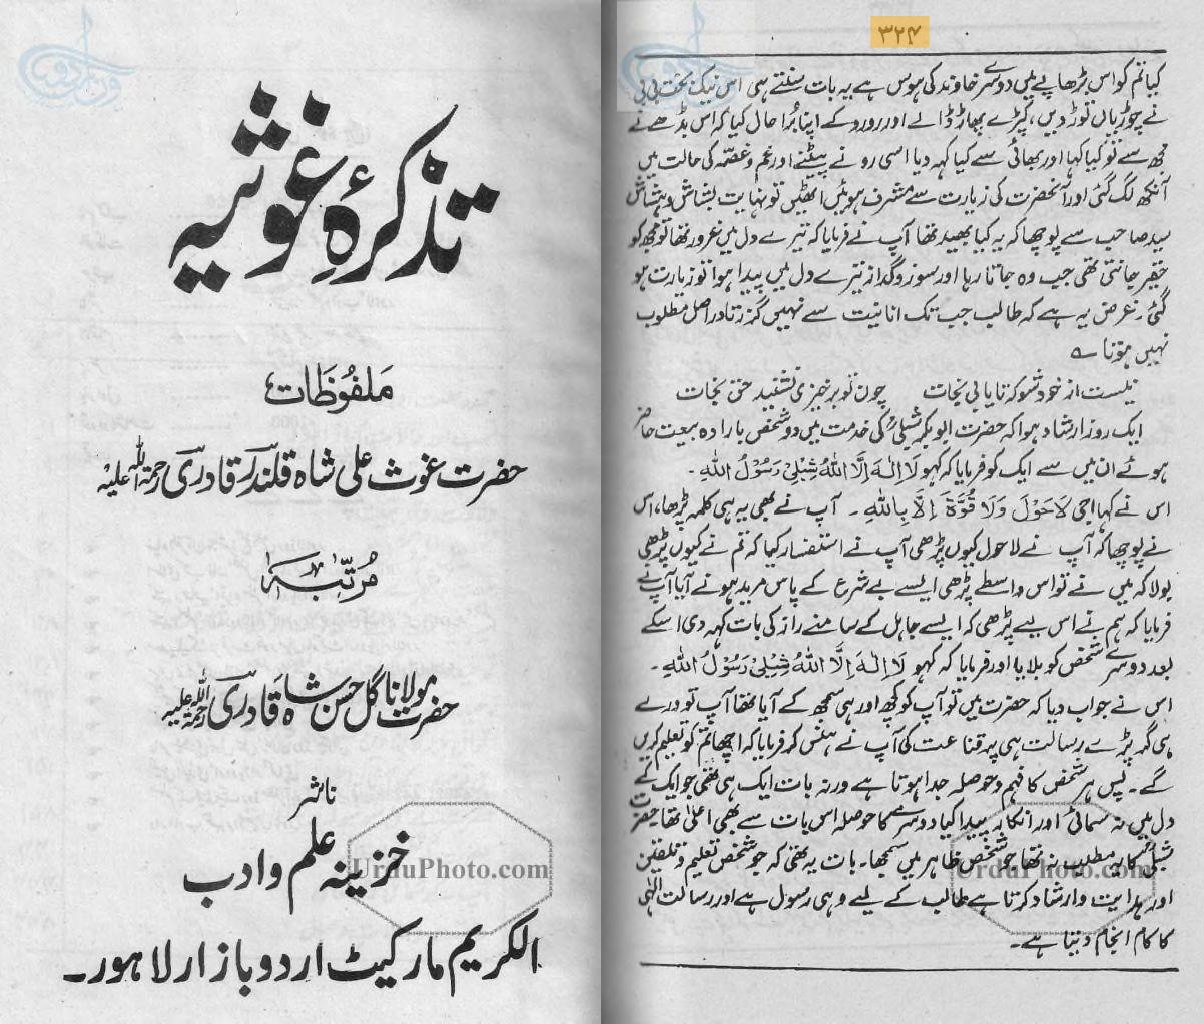 ۳۲۴
کیا تم کو اس بڑھاپے میں دوسرے خاوند کی ہوس ہے یہ بات سنتے ہی اس نیک بخت بی بی
نے چوڑیاں توڑ دیں، کپڑے پھاڑ ڈالے اور رو رو کے اپنا بُرا حال کیا کہ اس بڈھے نے
مجھ سے تو کیا کہا اور بھائی سے کیا کہہ دیا اسی رونے پیٹنے اور غم و غصّہ کی حالت میں
آنکھ لگ گئی اور آنحضرت کی زیارت سے مشرف ہوئیں اٹھیں تو نہایت بشاش و ہشاش
سید صاحب سے پوچھا کہ یہ کیا بھید تھا آپ نے فرمایا کہ تیرے دل میں غرور تھا تو مجھ کو
حقیر جانتی تھی جب وہ جاتا رہا اور سوز و گداز تیرے دل میں پیدا ہوا تو زیارت ہو
گئی۔ غرض یہ ہے کہ طالب جب تک انانیت سے نہیں گزرتا در اصل مطلوب
نہیں ہوتا ؎
نیست از خود شو کہ تا یابی نجات چون تو برخیزی نشیند حق بجات
ایک روز ارشاد ہوا کہ حضرت ابوبکر شبلیؒ کی خدمت میں دو شخص بارادہ بیعت حاضر
ہوئے ان میں سے ایک کو فرمایا کہ کہو لَا اِلٰہَ اِلَّا اللہُ شِبْلِیْ رَسُوْلُ اللہِ۔
اس نے کہا اجی لَاحَوْلَ وَلَا قُوَّةَ اِلَّا بِاللہِ۔ آپ نے بھی یہ ہی کلمہ پڑھا، اس
نے پوچھا کہ آپ نے لاحول کیوں پڑھی آپ نے استفسار کیا کہ تم نے کیوں پڑھی
بولا کہ میں نے تو اس واسطے پڑھی ایسے بے شرع کے پاس مرید ہونے آیا آپ نے
فرمایا کہ ہم نے اس لیے پڑھی کہ ایسے جاہل کے سامنے راز کی بات کہہ دی اسکے
بعد دوسرے شخص کو بلایا اور فرمایا کہ کہو لَا اِلٰہَ اِلَّا اللہُ شِبْلِیْ رَسُوْلُ اللہِ۔
اس نے جواب دیا کہ حضرت میں تو آپ کو کچھ اور ہی سمجھ کے آیا تھا آپ تو ورے
ہی گر پڑے رسالت ہی پر قناعت کی آپ نے ہنس کر فرمایا کہ اچھا تم کو تعلیم کریں
گے۔ پس ہر شخص کا فہم و حوصلہ جدا ہوتا ہے ورنہ بات ایک ہی تھی جو ایک کے
دل میں نہ سمائی اور انکار پیدا کیا دوسرے کا حوصلہ اس بات سے بھی اعلیٰ تھا۔ حضرت
شبلیؒ کا یہ مطلب نہ تھا جو شخص ظاہر میں سمجھا۔ بات یہ تھی کہ جو شخص تعلیم و تلقین
اور ہدایت و ارشاد کرتا ہے طالب کے لیے وہی رسول ہے اور رسالت الٰہی
کا کام انجام دیتا ہے۔
UrduPhoto.com
تذکرۂ غوثیہ
مَلفُوظَات
حضرت غوث علی شاہ قلندر قادری رحمۃ اللہ علیہ
مُرتّبہ
حضرت مولانا گل حسن شاہ قادری رحمۃ اللہ علیہ
ناشر
خزینہ علم و ادب
الکریم مارکیٹ اردو بازار لاہور۔
UrduPhoto.com